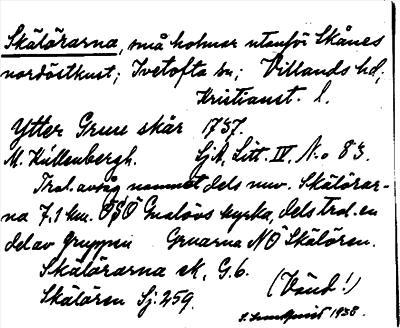 Skälörarna, små holmar utanför Skånes
nordöstkust; Ivetofta sn; Villands hd;
Kristianst. l.
Ytter Grue skär 1737.
M. Kiellenbergh. SjK. Litt. IV. No 83.
Trol. avsåg namnet dels nuv. Skälörar-
na 7,1 km. ÖSÖ Gualövs kyrka, dels trol. en
del av gruppen Gruarna NÖ Skälören.
Skälörarna ek. G.6.
Skälören Sj. 259.
(Vänd!)
1938.